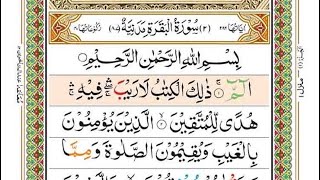 (٢) سُوْرَةُ الْبَقَرَةِ مَدَنِيَّةٌ (٨٧)
بِسْمِ اللهِ الرَّحْمٰنِ الرَّحِيْمِ
الٓمّٓ ۚ ذٰلِكَ الْكِتٰبُ لَا رَيْبَ ۛ فِيْهِ ۛ
هُدًى لِّلْمُتَّقِيْنَ الَّذِيْنَ يُؤْمِنُوْنَ
بِالْغَيْبِ وَيُقِيْمُوْنَ الصَّلٰوةَ وَمِمَّا